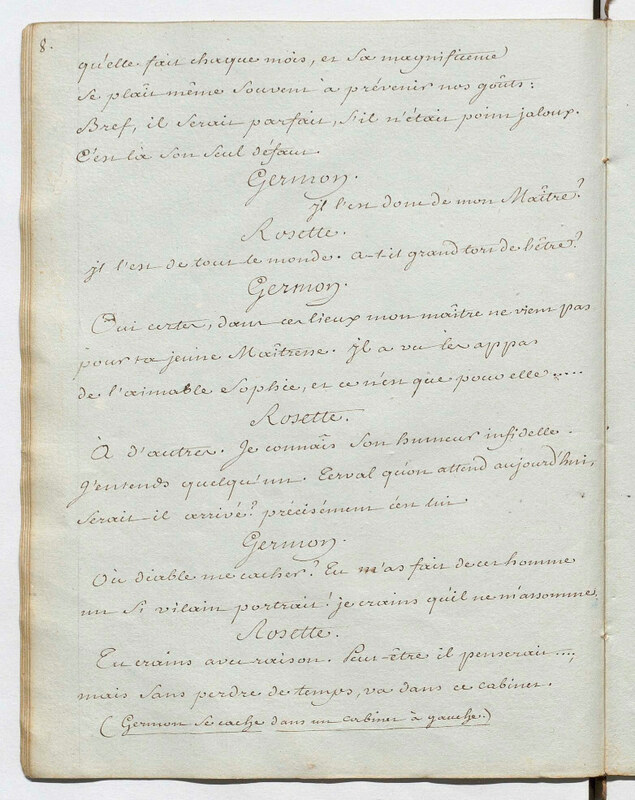 8.
qu'elle fait chaque mois, et sa magnificence
se plaît même souvent à prévenir nos goûts:
Bref, il serait parfait, s'il n'était point jaloux.
C'est là son seul défaut.
Germon.
jl l'est donc de mon Maître?
Rosette.
jl l'est de tout le monde. a-t-il grand tort de l'être?
Germon.
Oui certes, dans ces lieux mon maître ne vient pas
pour ta jeune Maîtresse. jl a vu les appas
de l'aimable Sophie, et ce n'est que pour elle .....
Rosette.
À d'autres. Je connais son humeur infidelle.
J'entends quelqu'un. Terval qu'on attend aujourd'hui,
serait il arrivé? précisément c'est lui
Germon.
Où diable me cacher? Tu m'as fait de cet homme
un si vilain portrait! je crains qu'il ne m'assomme.
Rosette.
Tu crains avec raison. Peut-être il penserait ....,
mais sans perdre de temps, va dans ce cabinet.
(Germon se cache dans un cabinet à gauche.)